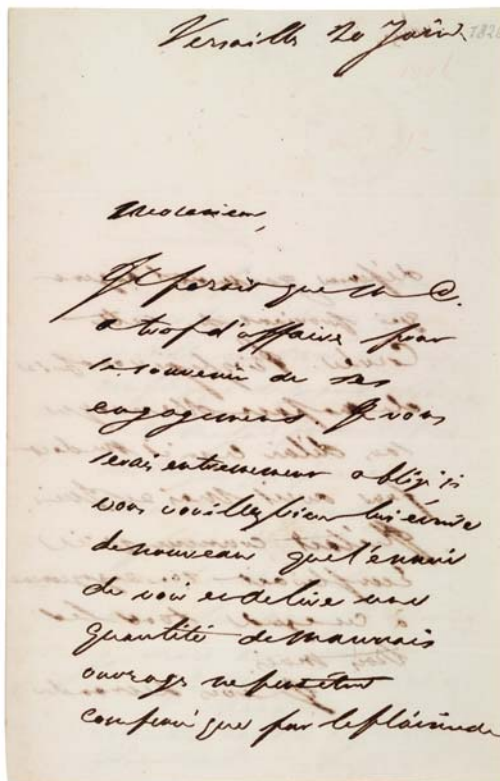 Versailles 20 Juin 182
Monsieur,
Il parait que M C.
a trop d'affaire pour
se souvenir de ses
engagemens. Je vous
serais extremement obligé si
vous vouliez bien lui écrire
de nouveau que l'ennui
de voir et de lire une
quantité de mauvais
ouvrages ne peut être
compensé que par le plaisir de